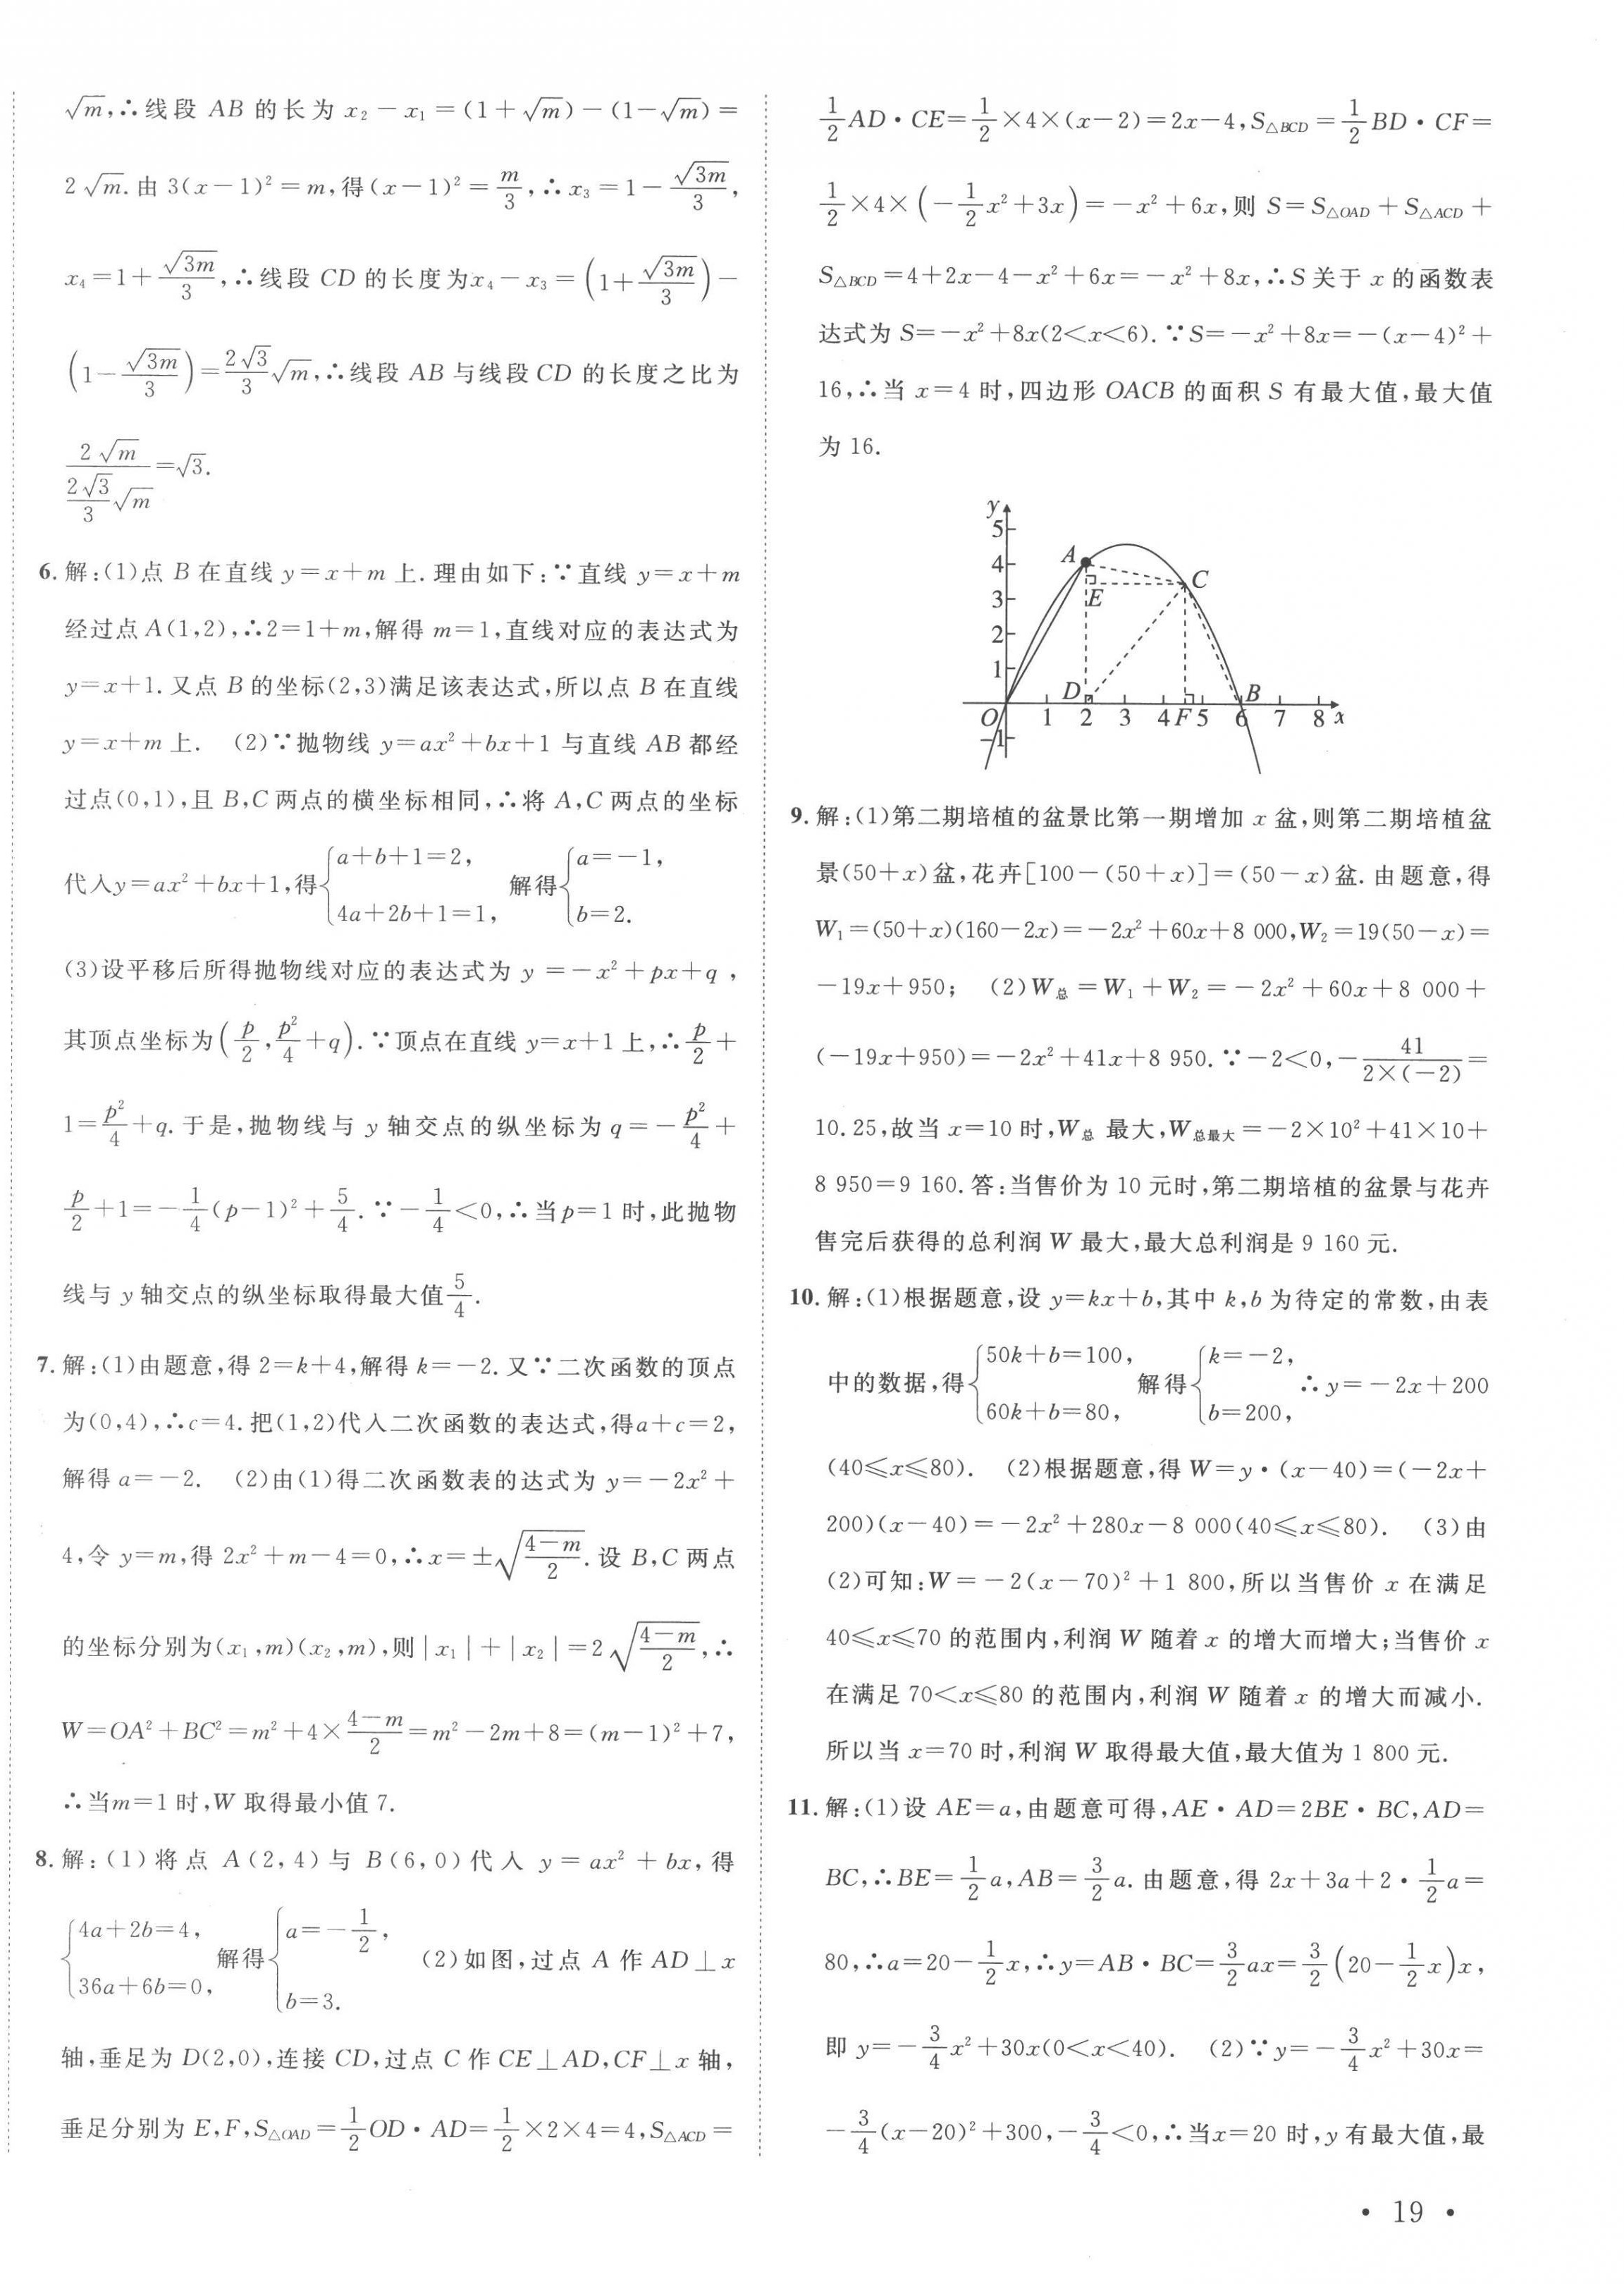 √m,∴线段 AB 的长为 x₂－x₁＝(1＋√m)－(1－√m)＝
2√m.由 3(x－1)²＝m,得(x－1)²＝m/3,∴x₃＝1－√(3m)/3,
x₄＝1＋√(3m)/3,∴线段 CD 的长度为x₄－x₃＝(1＋√(3m)/3)－
(1－√(3m)/3)＝(2√3/3)√m,∴线段 AB 与线段CD 的长度之比为
2√m/((2√3/3)√m)＝√3.
6.解:(1)点 B 在直线 y＝x＋m 上.理由如下:∵直线 y＝x＋m
经过点 A(1,2),∴2＝1＋m,解得 m＝1,直线对应的表达式为
y＝x＋1.又点 B 的坐标(2,3)满足该表达式,所以点 B 在直线
y＝x＋m 上. (2)∵抛物线 y＝ax²＋bx＋1 与直线 AB 都经
过点(0,1),且 B,C 两点的横坐标相同,∴将 A,C 两点的坐标
代入y＝ax²＋bx＋1,得{a＋b＋1＝2, 4a＋2b＋1＝1, 解得{a＝－1, b＝2.
(3)设平移后所得抛物线对应的表达式为 y＝－x²＋px＋q,
其顶点坐标为(p/2,p²/4＋q).∵顶点在直线 y＝x＋1 上,∴p/2＋
1＝p²/4＋q.于是,抛物线与 y 轴交点的纵坐标为 q＝－p²/4＋
p/2＋1＝－1/4(p－1)²＋5/4.∵－1/4＜0,∴当p＝1 时,此抛物
线与 y 轴交点的纵坐标取得最大值5/4.
7.解:(1)由题意,得 2＝k＋4,解得 k＝－2.又∵二次函数的顶点
为(0,4),∴c＝4.把(1,2)代入二次函数的表达式,得a＋c＝2,
解得 a＝－2. (2)由(1)得二次函数表的达式为 y＝－2x²＋
4,令 y＝m,得 2x²＋m－4＝0,∴x＝±√((4－m)/2).设 B,C 两点
的坐标分别为(x₁,m)(x₂,m),则|x₁|＋|x₂|＝2√((4－m)/2),∴
W＝OA²＋BC²＝m²＋4×(4－m)/2＝m²－2m＋8＝(m－1)²＋7,
∴当m＝1 时,W 取得最小值 7.
8.解:(1)将点 A(2,4)与 B(6,0)代入 y＝ax²＋bx,得
{4a＋2b＝4, 36a＋6b＝0, 解得{a＝－1/2, b＝3. (2)如图,过点 A 作 AD⊥x
轴,垂足为 D(2,0),连接 CD,过点 C 作 CE⊥AD,CF⊥x 轴,
垂足分别为 E,F,S△OAD＝1/2OD·AD＝1/2×2×4＝4,S△ACD＝
1/2AD·CE＝1/2×4×(x－2)＝2x－4,S△BCD＝1/2BD·CF＝
1/2×4×(－1/2x²＋3x)＝－x²＋6x,则 S＝S△OAD＋S△ACD＋
S△BCD＝4＋2x－4－x²＋6x＝－x²＋8x,∴S 关于 x 的函数表
达式为 S＝－x²＋8x(2＜x＜6).∵S＝－x²＋8x＝－(x－4)²＋
16,∴当 x＝4 时,四边形 OACB 的面积 S 有最大值,最大值
为 16.
y
5
A
4
C
3
E
2
1
D
B
O 1 2 3 4 F 5 6 7 8 x
－1
9.解:(1)第二期培植的盆景比第一期增加 x 盆,则第二期培植盆
景(50＋x)盆,花卉[100－(50＋x)]＝(50－x)盆.由题意,得
W₁＝(50＋x)(160－2x)＝－2x²＋60x＋8 000,W₂＝19(50－x)＝
－19x＋950; (2)W总＝W₁＋W₂＝－2x²＋60x＋8 000＋
(－19x＋950)＝－2x²＋41x＋8 950.∵－2＜0,－41/(2×(－2))＝
10.25,故当 x＝10 时,W总 最大,W总最大＝－2×10²＋41×10＋
8 950＝9 160.答:当售价为 10 元时,第二期培植的盆景与花卉
售完后获得的总利润 W 最大,最大总利润是 9 160 元.
10.解:(1)根据题意,设 y＝kx＋b,其中 k,b 为待定的常数,由表
中的数据,得{50k＋b＝100, 60k＋b＝80, 解得{k＝－2, b＝200, ∴y＝－2x＋200
(40≤x≤80). (2)根据题意,得 W＝y·(x－40)＝(－2x＋
200)(x－40)＝－2x²＋280x－8 000(40≤x≤80). (3)由
(2)可知:W＝－2(x－70)²＋1 800,所以当售价 x 在满足
40≤x≤70 的范围内,利润 W 随着 x 的增大而增大;当售价 x
在满足 70＜x≤80 的范围内,利润 W 随着 x 的增大而减小.
所以当 x＝70 时,利润 W 取得最大值,最大值为 1 800 元.
11.解:(1)设 AE＝a,由题意可得,AE·AD＝2BE·BC,AD＝
BC,∴BE＝1/2a,AB＝3/2a.由题意,得 2x＋3a＋2·1/2a＝
80,∴a＝20－1/2x,∴y＝AB·BC＝3/2ax＝3/2(20－1/2x)x,
即 y＝－3/4x²＋30x(0＜x＜40). (2)∵y＝－3/4x²＋30x＝
－3/4(x－20)²＋300,－3/4＜0,∴当x＝20 时,y 有最大值,最
·19·